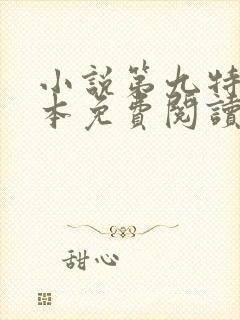 小說第九特
本免費閱讀
甜心